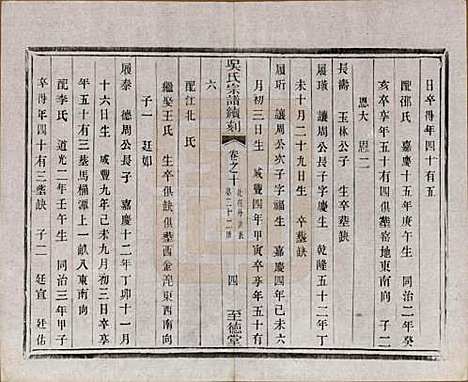 日卒得年四十有五
配邵氏 嘉慶十五年庚午生 同治二年癸
亥卒享年五十有四合葬窑地東南向 子二
恩大 恩二
長壽 玉林公子 生卒葬缺
履璥 讓周公長子字慶生 乾隆五十二年丁
未十月二十九日生 卒葬缺
履珩 讓周公次子字福生 嘉慶四年己未六
月初三日生 咸豐四年甲寅卒享年五十有
六
吳氏宗譜續刻
卷之十
第二十二世
四
至德堂
配江北 氏
繼娶王氏 生卒俱缺俱葬西金涅東西南向
子一 廷如
履泰 德周公長子 嘉慶十二年丁卯十一月
十六日生 咸豐九年己未九月初三日卒享
年五十有三葬馬橋潭上一畝入東南向
配李氏 道光二年壬午生 同治三年甲子
卒得年四十有三葬缺 子二 廷宣 廷佑